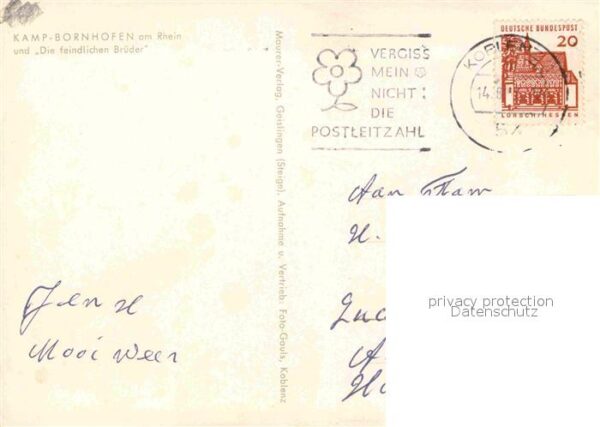 KAMP-BORNHOFEN am Rhein
und „Die feindlichen Brüder"
Maurer-Verlag, Geislingen (Steige), Aufnahme u. Vertrieb: Foto-Gauls, Koblenz
VERGISS
MEIN
NICHT
DIE
POSTLEITZAHL
KOBLEN
14.
54
DEUTSCHE BUNDESPOST
20
LORSCH/HESSEN
Aan Fam
H.
privacy protection
Datenschutz
Mooi Weer